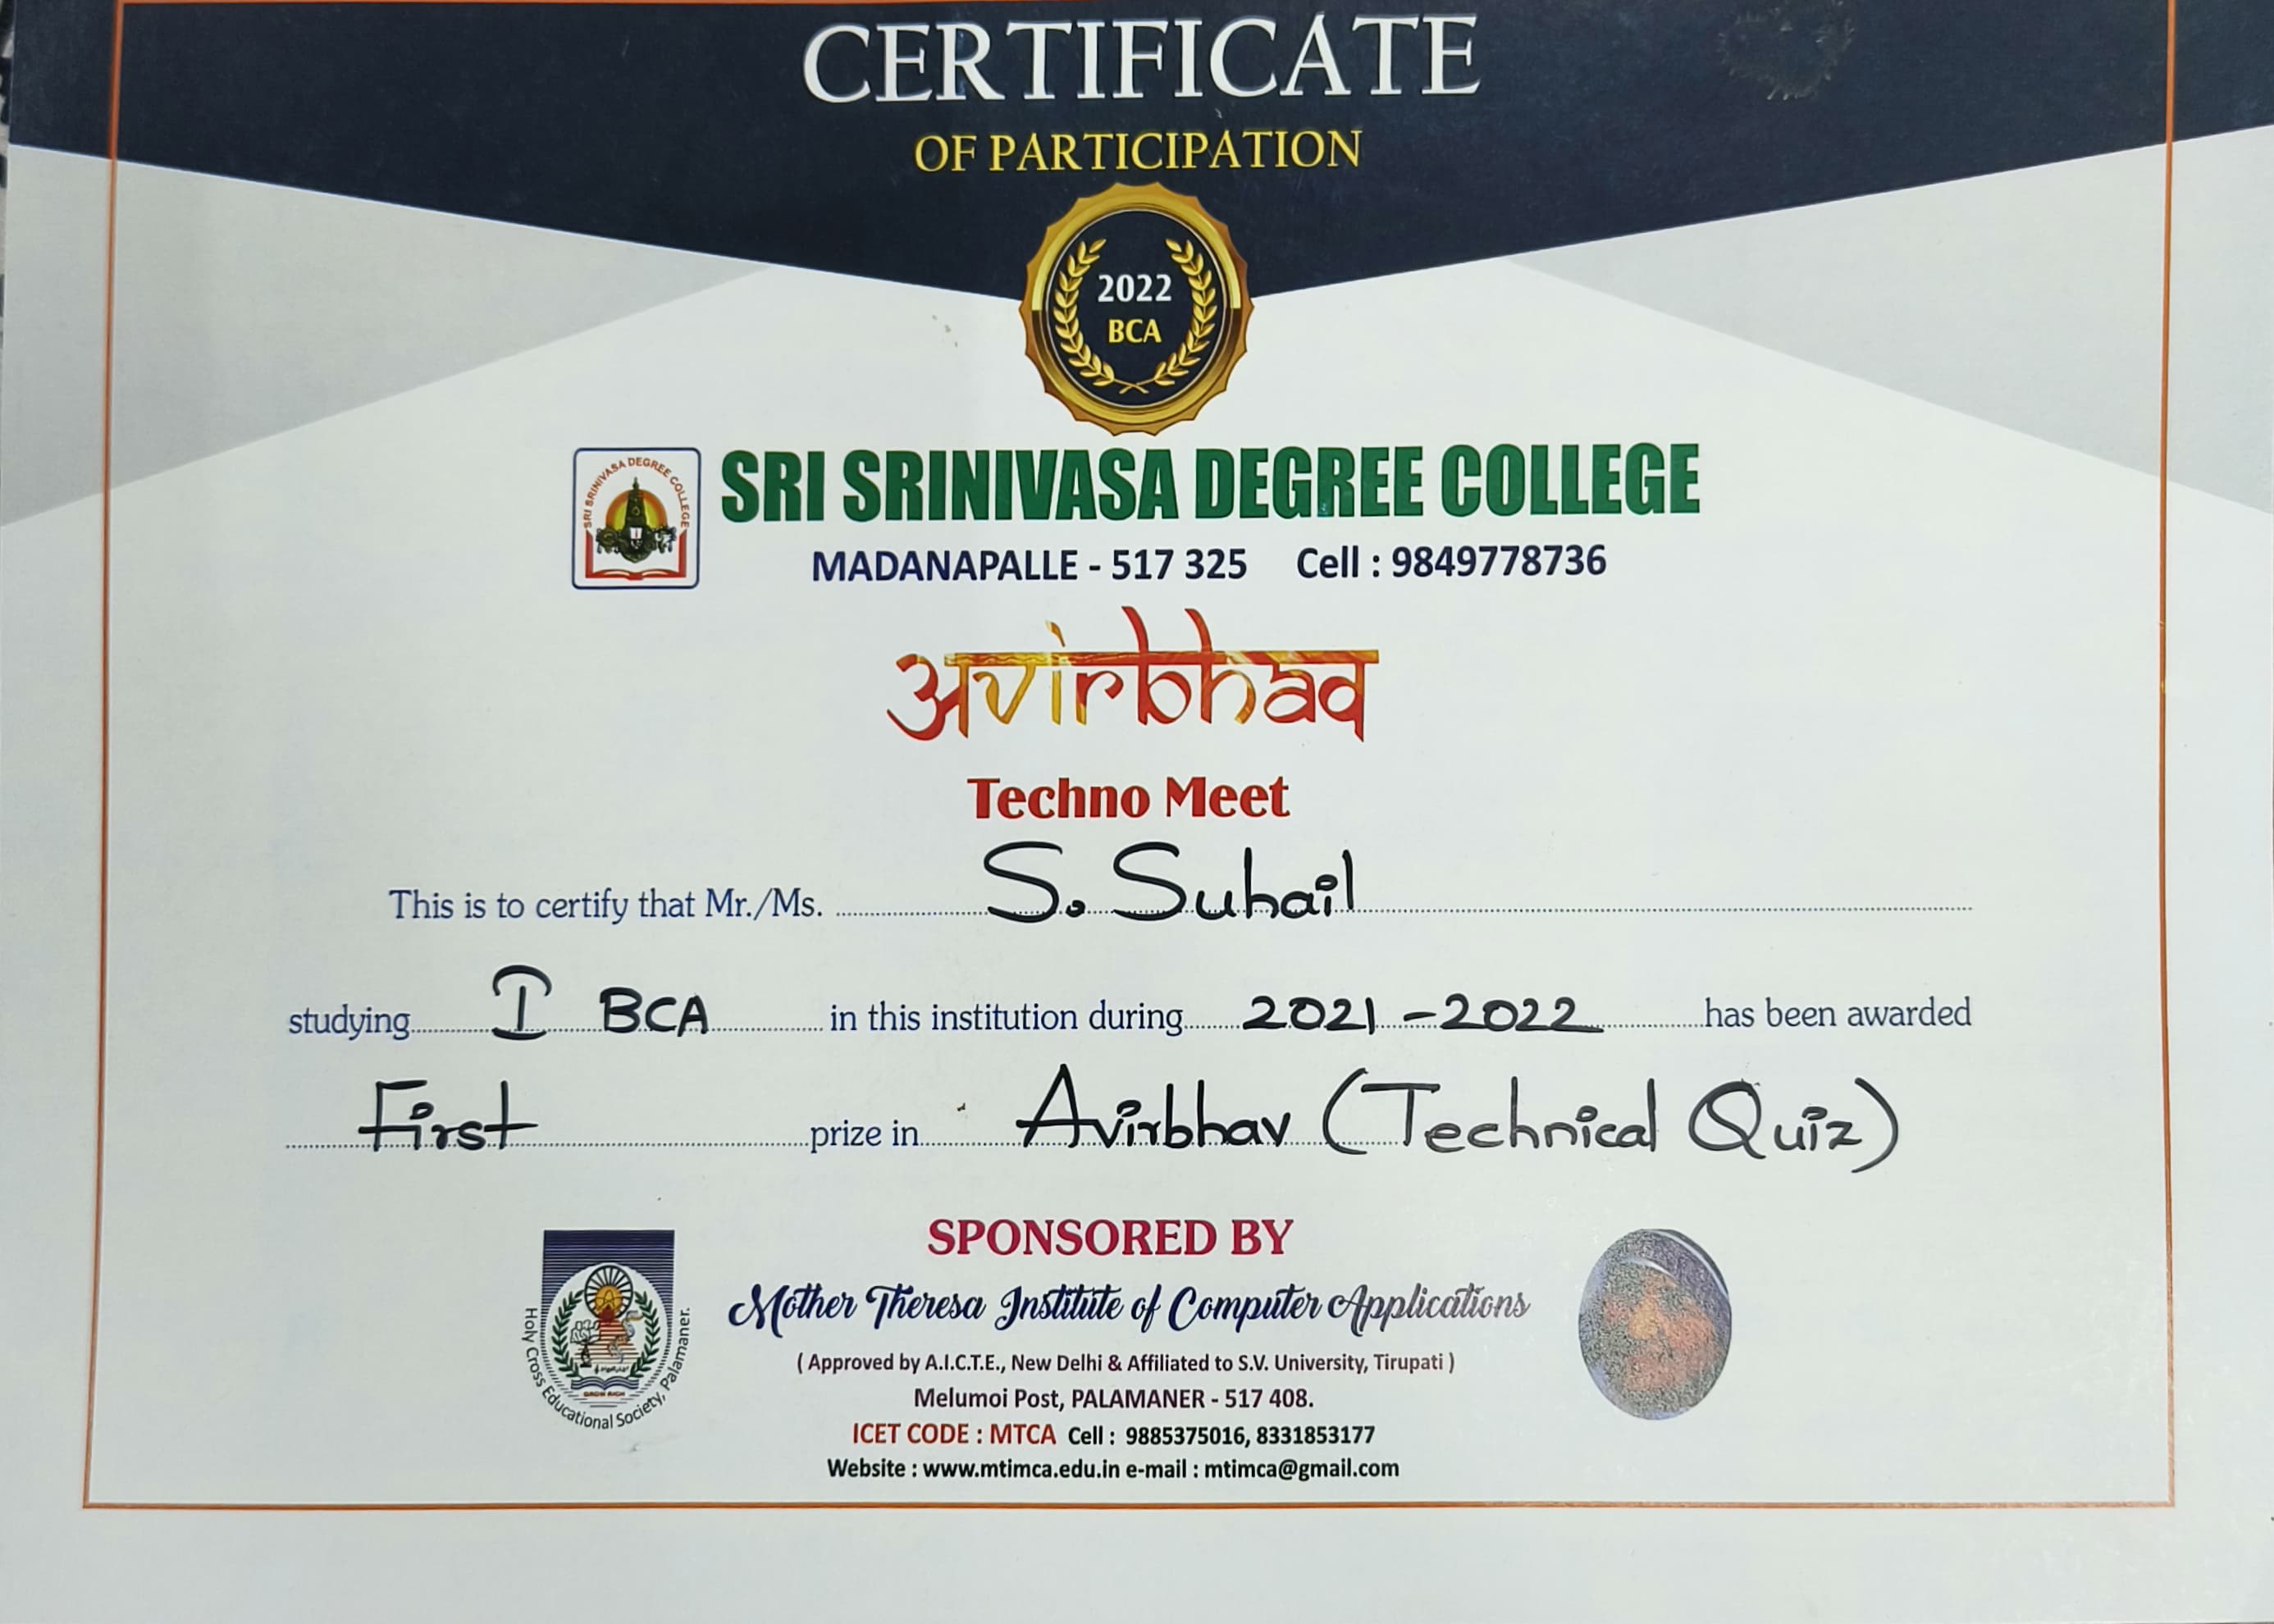 CERTIFICATE
OF PARTICIPATION
2022
BCA
SRI SRINIVASA DEGREE COLLEGE
SRI SRINIVASA DEGREE COLLEGE
MADANAPALLE - 517 325 Cell : 9849778736
अvirbhav
Techno Meet
This is to certify that Mr./Ms. S. Suhail
studying I BCA in this institution during 2021-2022 has been awarded
First prize in Avirbhav (Technical Quiz)
SPONSORED BY
Mother Theresa Institute of Computer Applications
( Approved by A.I.C.T.E., New Delhi & Affiliated to S.V. University, Tirupati )
Melumoi Post, PALAMANER - 517 408.
ICET CODE : MTCA Cell : 9885375016, 8331853177
Website : www.mtimca.edu.in e-mail : mtimca@gmail.com
Holy Cross Educational Society, Palamaner.